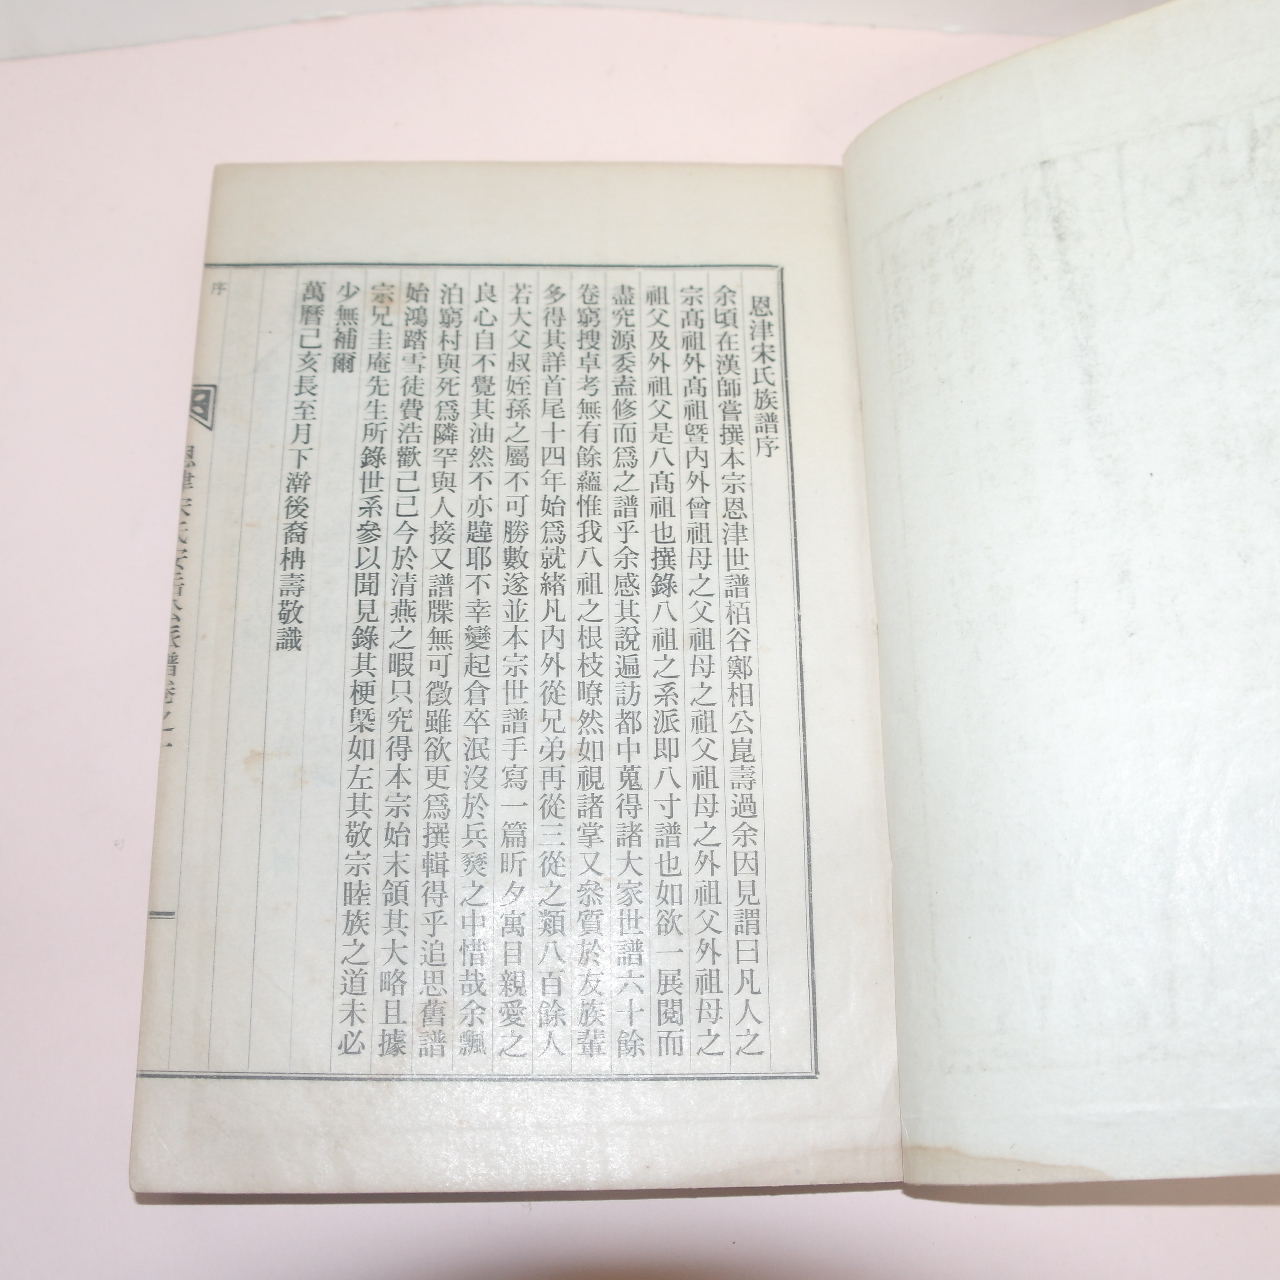 恩津宋氏族譜序
余頃在漢師嘗撰本宗恩津世譜栢谷鄭相公崑壽過余因見謂曰凡人之
宗高祖外高祖曁內外曾祖母之父祖母之祖父祖母之外祖父外祖母之
祖父及外祖父是八高祖也撰錄八祖之系派即八寸譜也如欲一展閱而
盡究源委盍修而爲之譜乎余感其說遍訪都中蒐得諸大家世譜六十餘
卷窮搜卓考無有餘蘊惟我八祖之根枝瞭然如視諸掌又叅質於友族輩
多得其詳首尾十四年始爲就緖凡內外從兄弟再從三從之類八百餘人
若大父叔姪孫之屬不可勝數遂並本宗世譜手寫一篇昕夕寓目親愛之
良心自不覺其油然不亦韙耶不幸變起倉卒泯沒於兵燹之中惜哉余飄
泊窮村與死爲隣罕與人接又譜牒無可徵雖欲更爲撰輯得乎追思舊譜
始鴻踏雪徒費浩歎己己今於清燕之暇只究得本宗始末領其大略且據
宗兄圭庵先生所錄世系參以聞見錄其梗槩如左其敬宗睦族之道未必
少無補爾
萬曆己亥長至月下澣後裔柟壽敬識
序
恩津宋氏安岳公派譜卷之一